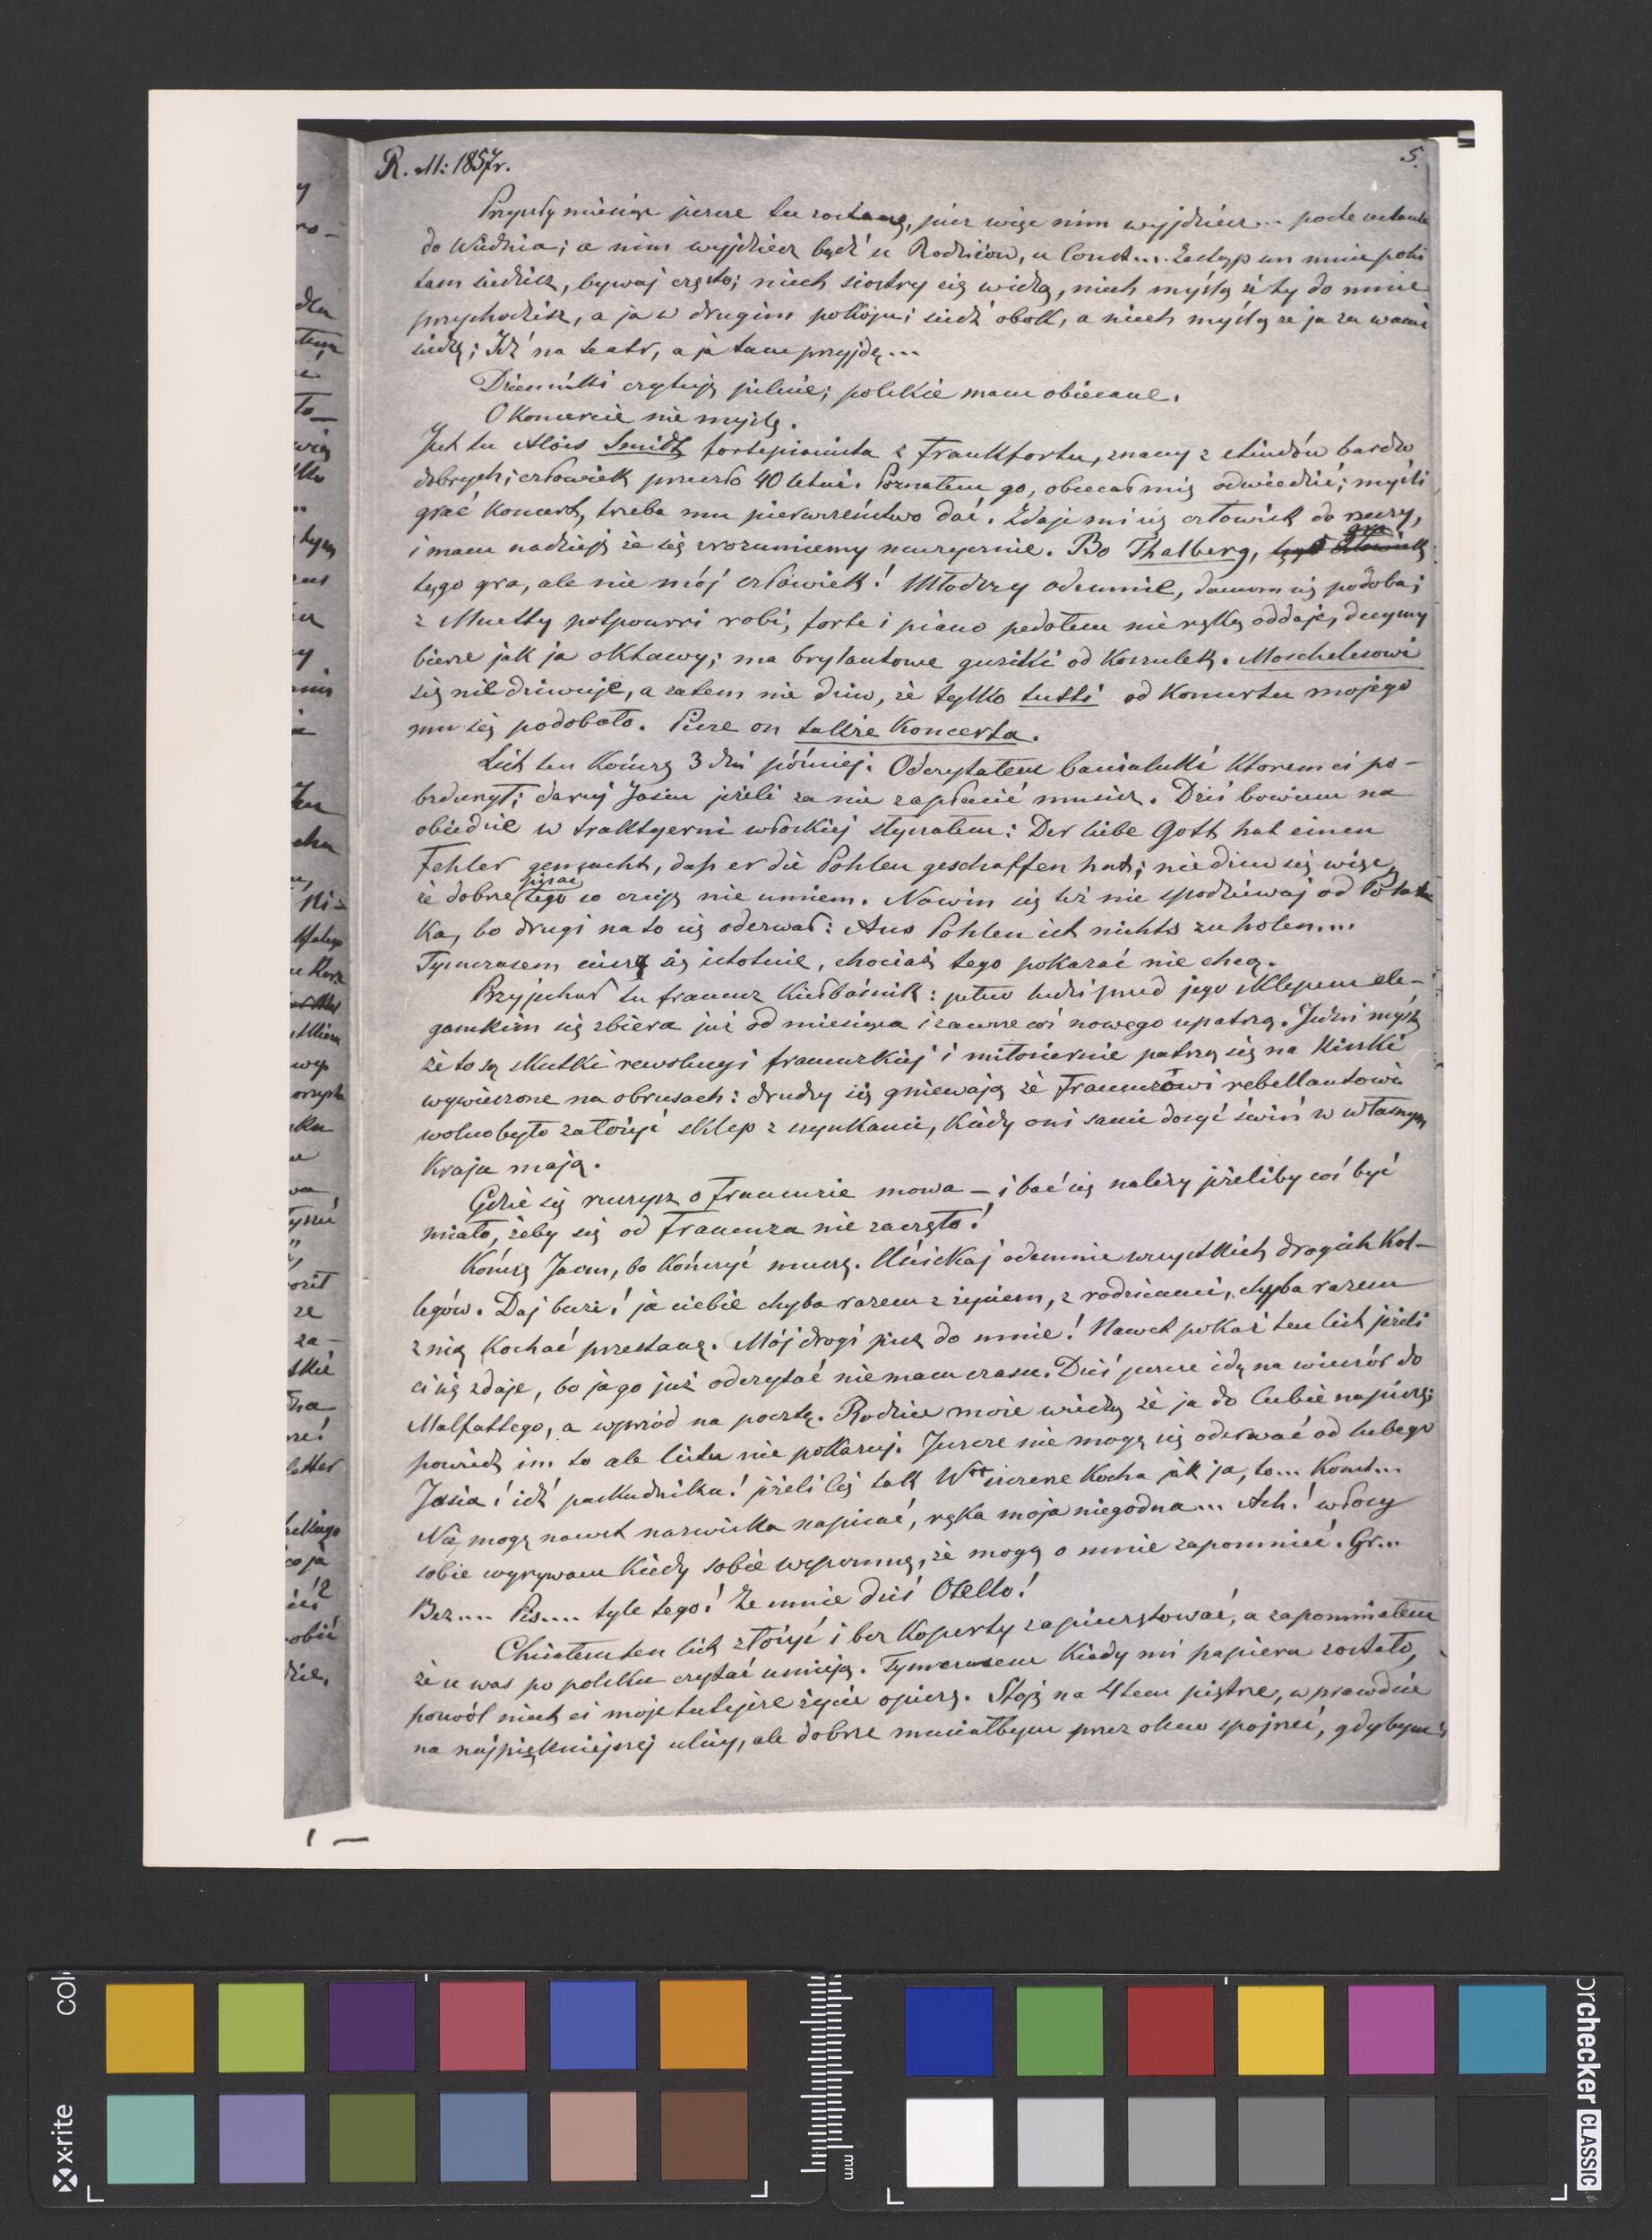 R. M: 1857r.
5.
Przyszły miesiąc jeszcze tu zostanę, pisz więc nim wyjdziesz... poste restante
do Wiednia; a nim wyjdziesz bądź u Rodziców, u Const.... Zastęp im mnie póki
tam siedzisz, bywaj często; niech siostry cię widzą, niech myślą iż ty do mnie
przychodzisz, a ja w drugim pokoju; siedź obok, a niech myślą że ja za wami
siedzę; Idź na teatr, a ja tam przyjdę...
Dzienniki czytuję pilnie; polskie mam obiecane.
O Koncercie nie myślę.
Jest tu Alois Smidt fortepianista z Frankfortu, znany z etiudów bardzo
dobrych; człowiek przeszło 40 letni. Poznałem go, obiecał mię odwiedzić; myśli
grać Koncert, trzeba mu pierwszeństwo dać. Zdaje mi się człowiek do rzeczy,
i mam nadzieję że się zrozumiemy muzycznie. Bo Thalberg,
gra
tęgo gra, ale nie mój człowiek! Młodszy odemnie, damom się podoba;
z Muetty potpourri robi, forte i piano pedałem nie ręką oddaje, decymy
bierze jak ja oktawy; ma brylantowe guziki od Koszulek. Moschelesowi
się nie dziwuje, a zatem nie dziw, że tylko tutti od Koncertu mojego
mu się podobało. Pisze on także Koncerta.
List ten Kończę 3 dni później. Odczytałem banialuki którem ci po-
bzdurzył; daruj Jasiu jeżeli za nie zapłacić musisz. Dziś bowiem na
obiedzie w traktyerni włoskiej słyszałem: Der liebe Gott hat einen
Fehler gemacht, dass er die Pohlen geschaffen hat; nie dziw się więc,
pisać
że dobrze tego co czuję nie umiem. Nowin się też nie spodziewaj od Pola-
ka, bo drugi na to się odezwał: Aus Pohlen ist nichts zu holen....
Tymczasem cieszą się istotnie, chociaż tego pokazać nie chcą.
Przyjechał tu francuz Kiełbaśnik: pełno ludzi przed jego sklepem ele-
ganckim się zbiera już od miesiąca i zawsze coś nowego upatrzą. Jedni myślą
że to są skutki rewolucyi francuzkiej i miłosiernie patrzą się na Kiszki
wywieszone na obrusach: drudzy się gniewają że Francuzowi rebellantowi
wolno było założyć sklep z szynkami, Kiedy oni sami dosyć świń w własnym
Kraju mają.
Gdzie się ruszysz o Francuzie mowa – i bać się należy jeżeliby coś być
miało, żeby się od Francuza nie zaczęło!
Kończę Jasiu, bo Kończyć muszę. Uściskaj odemnie wszystkich drogich Kol-
legów. Daj buzi! ja ciebie chyba razem z życiem, z rodzicami, chyba razem
z nią Kochać przestanę. Mój drogi pisz do mnie! Nawet pokaż ten list jeżeli
ci się zdaje, bo jago już odczytać nie mam czasu. Dziś jeszcze idę na wieczór do
Malfattego, a wprzód na pocztę. Rodzice może wiedzą że ja do Ciebie napiszę;
powiedz im to ale listu nie pokazuj. Jeszcze nie mogę się oderwać od lubego
Jasia! idź paskudniku! jeżeli Cię tak W** szczerze Kocha jak ja, to... Konst...
Nie mogę nawet nazwiska napisać, ręka moja niegodna... Ach! włosy
sobie wyrywam Kiedy sobie wspomnę, że mogą o mnie zapomnieć. Gr...
Bez.... Pis.... tyle tego! Ze mnie dziś Otello!
Chciałem ten list złożyć i bez Koperty zapieczętować, a zapomniałem
że u was po polsku czytać umieją. Tymczasem Kiedy mi papieru zostało,
pozwól niech ci moje tutejsze życie opiszę. Stoję na 4tem piętrze, wprawdzie
na najpiękniejszej ulicy, ale dobrze musiałbym przez okno spojrzeć, gdybym